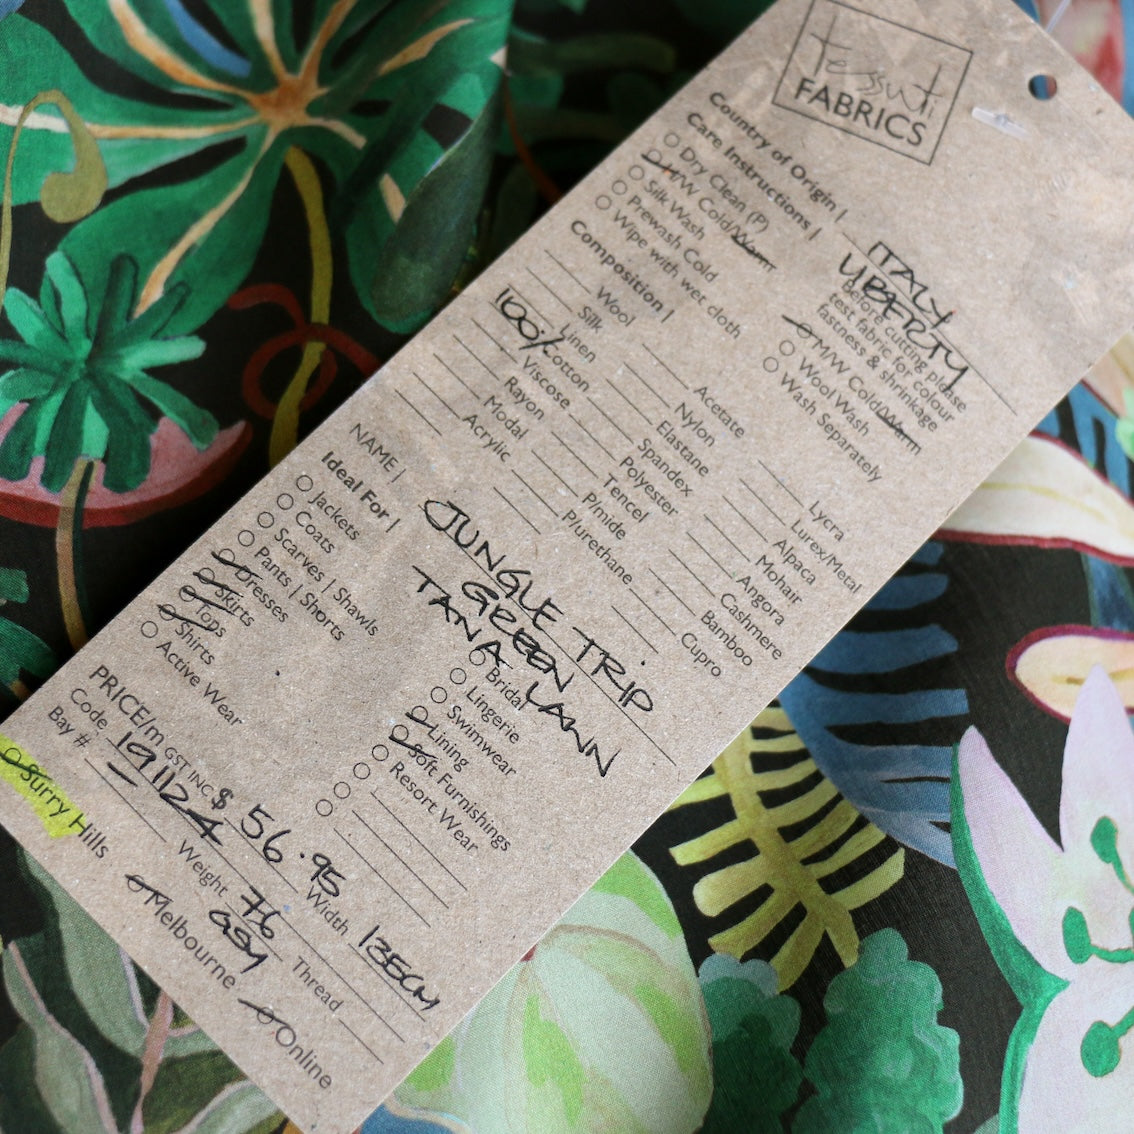 tessuti
FABRICS
Country of Origin | ITALY
LIBERTY
Care Instructions |
Dry Clean (P)
H/W Cold/Warm
Silk Wash
Prewash Cold
Wipe with wet cloth
Before cutting please
test fabric for colour
fastness & shrinkage
M/W Cold/Warm
Wool Wash
Wash Separately
Composition |
Wool
Silk
Linen
100% Cotton
Viscose
Rayon
Modal
Acrylic
Acetate
Nylon
Elastane
Spandex
Polyester
Tencel
P/mide
P/urethane
Lycra
Lurex/Metal
Alpaca
Mohair
Angora
Cashmere
Bamboo
Cupro
NAME | JUNGLE TRIP
GREEN
TANA LAWN
Ideal For |
Jackets
Coats
Scarves | Shawls
Pants | Shorts
Dresses
Skirts
Tops
Shirts
Active Wear
Bridal
Lingerie
Swimwear
Lining
Soft Furnishings
Resort Wear
PRICE/m GST INC $ 56.95
Code 191124 Width 135CM
Bay # Weight 76 GSM Thread
Surry Hills Melbourne Online